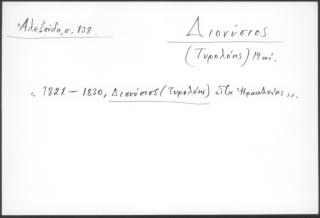 Ἀλεξούδη, σ. 138.
Διονύσιος
(Τυρολόης) 19 αἰ.
«1821 – 1830, Διονύσιος (Τυρολόης) εἶτα Ἡρακλείας».